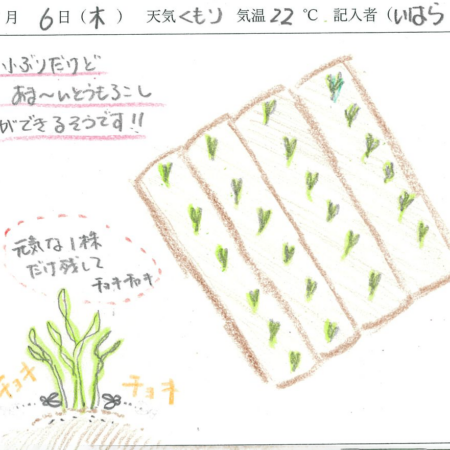 月 6日(木) 天気 くもり 気温 22 ℃ 記入者(いはら
小ぶりだけど
あま〜いとうもろこし
ができるそうです!!
元気な1株
だけ残して
チョキチョキ
チョキ
チョキ